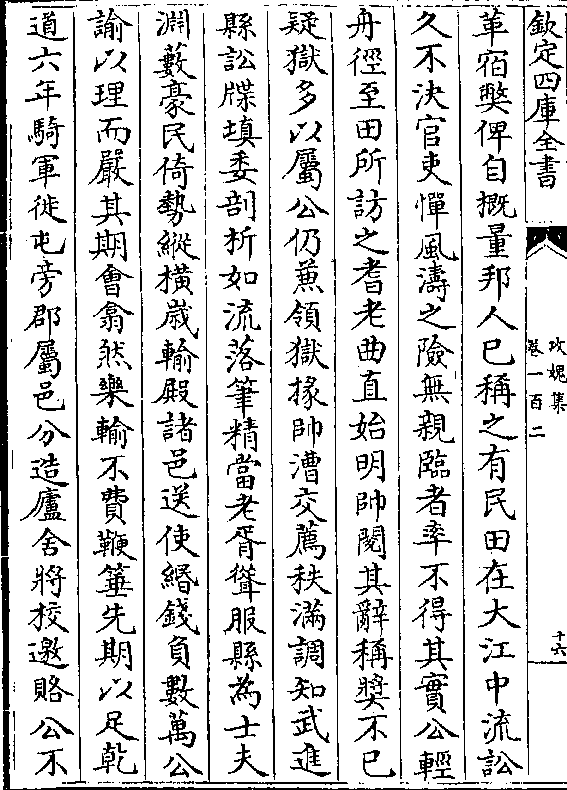 欽定四庫全書
攻媿集
卷一百二
十六
革宿弊俾自概量邦人已稱之有民田在大江中流訟
久不決官吏憚風濤之險無親臨者率不得其實公輕
舟徑至田所訪之耆老曲直始明帥閱其辭稱奬不已
疑獄多以屬公仍兼領獄掾帥漕交薦秩滿調知武進
縣訟牒填委剖析如流落筆精當老胥聳服縣為士夫
淵藪豪民倚勢縱橫歲輸殿諸邑送使緡錢負數萬公
諭以理而嚴其期會翕然樂輸不費鞭箠先期以足乾
道六年騎軍徙屯旁郡屬邑分造廬舍將校邀賂公不